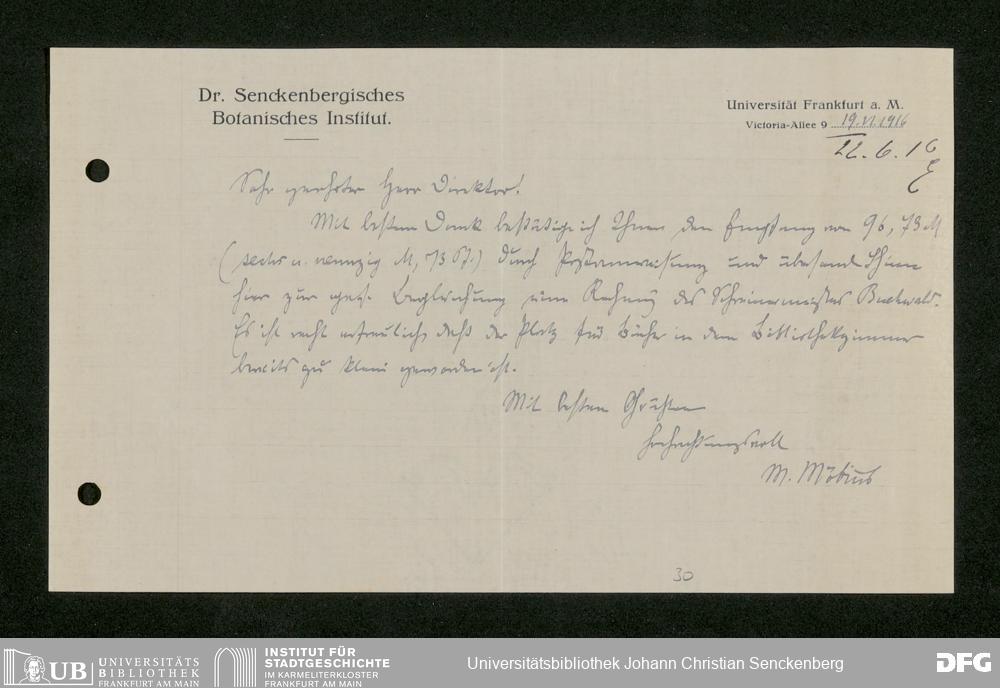 Dr. Senckenbergisches
Botanisches Institut.
Universität Frankfurt a. M.
Victoria-Allee 9 19.VI.1916
22.6.16
Sehr geehrter Herr Direktor!
Mit bestem Dank bestätige ich Ihnen den Empfang von 96,73 M
(sechs u. neunzig M, 73 Pf.) durch Postanweisung und übersende Ihnen
hier zur gefl. Begleichung eine Rechnung des Schreinermeisters Buchwald.
Es ist recht erfreulich, daß der Platz für Bücher in dem Bibliothekzimmer
bereits zu klein geworden ist.
Mit besten Grüßen
hochachtungsvoll
M. Möbius
30
UB UNIVERSITÄTS
BIBLIOTHEK
FRANKFURT AM MAIN
INSTITUT FÜR
STADTGESCHICHTE
IM KARMELITERKLOSTER
FRANKFURT AM MAIN
Universitätsbibliothek Johann Christian Senckenberg
DFG